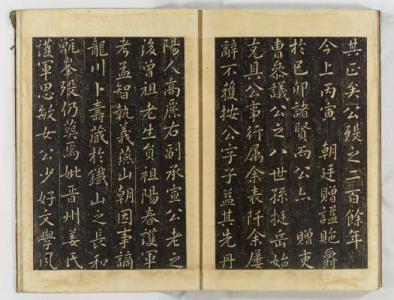 其正矣公歿之二百餘年
今上丙寅朝廷贈諡貤爵
於己卯諸賢而公亦贈吏
曹參議公之八世孫挺岳始
克具公事行屬余表阡余屢
辭不獲按公字子益其先丹
陽人高麗右副承宣公老之
後曾祖老生負祖陽春護軍
考孟智執義燕山朝因事謫
龍川卜壽藏於鐵山之長和
甑峯歿仍葬焉妣晉州姜氏
護軍思敏女公少好文學風